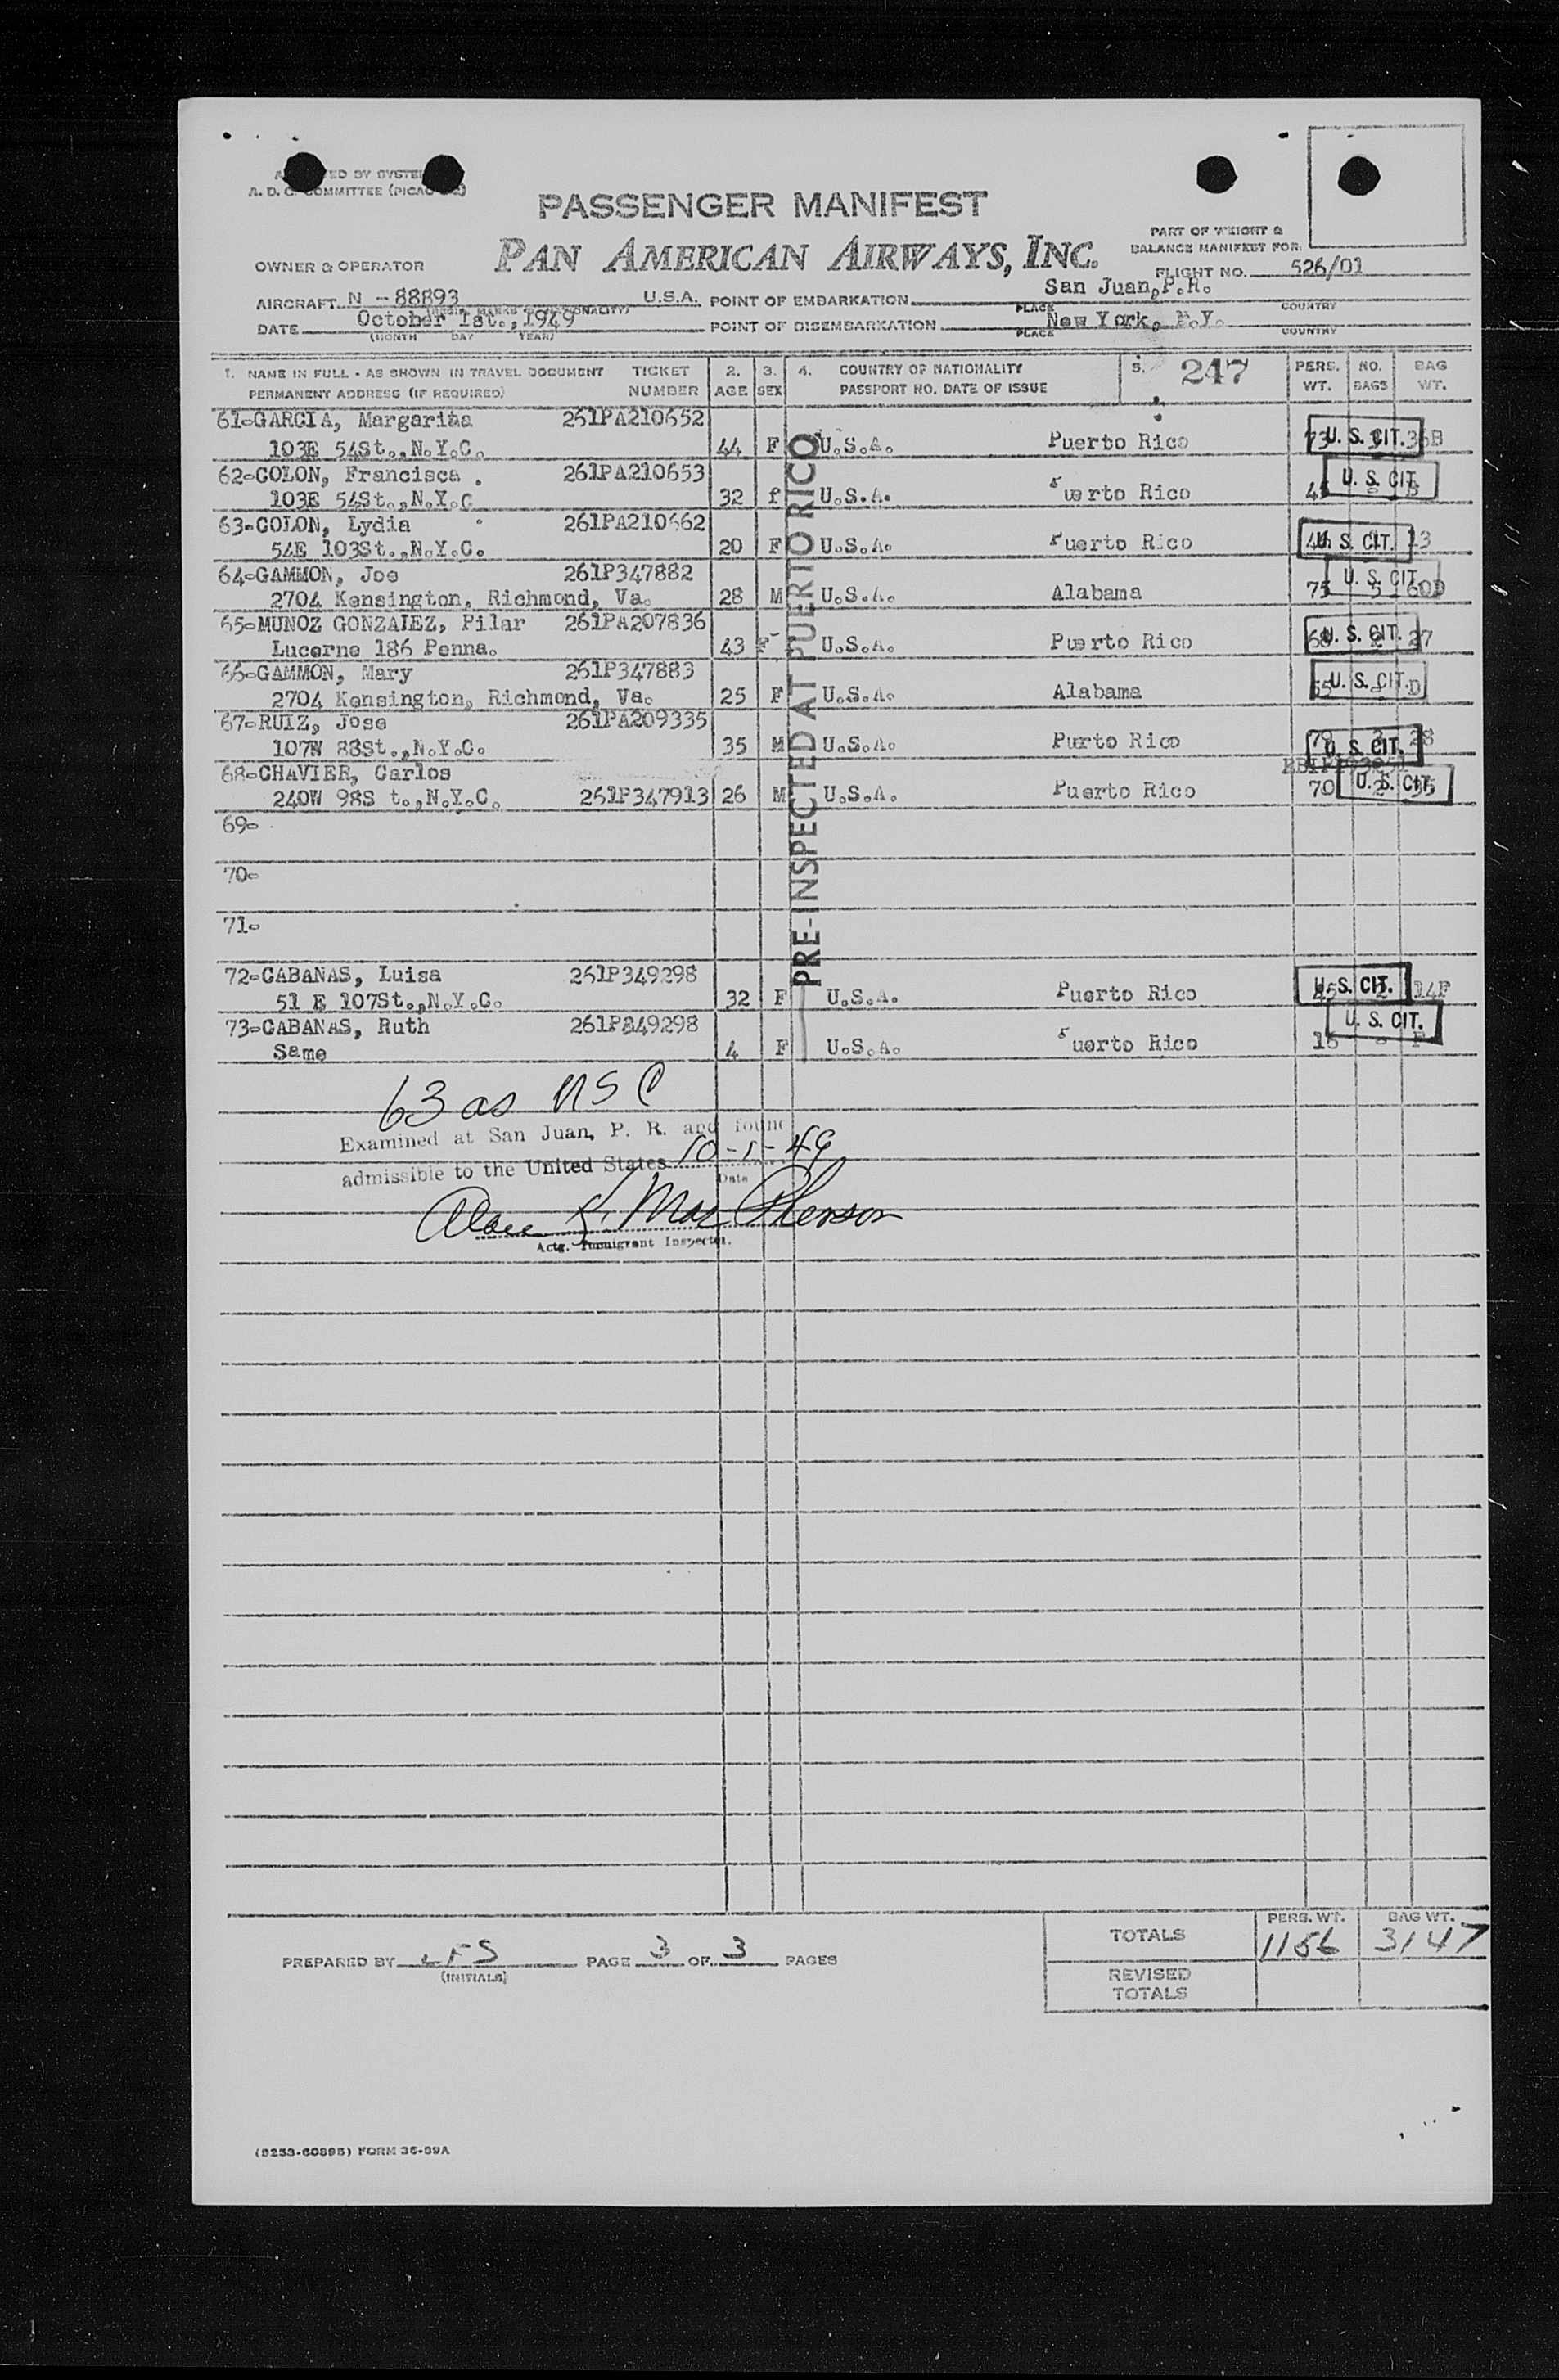 PASSENGER MANIFEST
PAN AMERICAN AIRWAYS, INC.
A. D. C. COMMITTEE
PART OF WEIGHT &
BALANCE MANIFEST FOR:
OWNER & OPERATOR
FLIGHT NO. 526/01
AIRCRAFT N -88893 U.S.A. POINT OF EMBARKATION San Juan, P.R.
PLACE COUNTRY
DATE October 1st., 1949 POINT OF DISEMBARKATION New York, N.Y.
(MONTH DAY YEAR) PLACE COUNTRY
1. NAME IN FULL - AS SHOWN IN TRAVEL DOCUMENT TICKET 2. 3. 4. COUNTRY OF NATIONALITY 5. 247 PERS. NO. BAG
PERMANENT ADDRESS (IF REQUIRED) NUMBER AGE SEX PASSPORT NO. DATE OF ISSUE WT. BAGS WT.
61-GARCIA, Margarita 261PA210652
103E 54St.,N.Y.C. 44 F U.S.A. Puerto Rico 73 U. S. CIT. 36B
62-COLON, Francisca 261PA210653
103E 54St.,N.Y.C 32 f U.S.A. Puerto Rico U. S. CIT.
63-COLON, Lydia 261PA210662
54E 103St.,N.Y.C. 20 F U.S.A. Puerto Rico U. S. CIT. 13
64-GAMMON, Joe 261P347882
2704 Kensington, Richmond, Va. 28 M U.S.A. Alabama 75 U. S. CIT. 5 60D
65-MUNOZ GONZALEZ, Pilar 261PA207836
Lucerne 186 Penna. 43 F U.S.A. Puerto Rico 68 U. S. CIT. 27
66-GAMMON, Mary 261P347883
2704 Kensington, Richmond, Va. 25 F U.S.A. Alabama 55 U. S. CIT. D
67-RUIZ, Jose 261PA209335
107W 88St.,N.Y.C. 35 M U.S.A. Purto Rico 79 U. S. CIT. 28
68-CHAVIER, Carlos
240W 98S t.,N.Y.C. 261P347913 26 M U.S.A. Puerto Rico 70 U. S. CIT.
69-
70-
71-
72-CABANAS, Luisa 261P349298
51 E 107St.,N.Y.C. 32 F U.S.A. Puerto Rico U. S. CIT. 14F
73-CABANAS, Ruth 261P349298
Same 4 F U.S.A. Puerto Rico 16 U. S. CIT. F
PRE-INSPECTED AT PUERTO RICO
63 as USC
Examined at San Juan, P. R. and found
admissible to the United States 10-1-49
Date
Alan K. MacPherson
Actg. Immigrant Inspector.
PERS. WT. BAG WT.
TOTALS 1156 3147
PREPARED BY LFS PAGE 3 OF 3 PAGES
(INITIALS)
REVISED
TOTALS
(8253-60895) FORM 36-89A